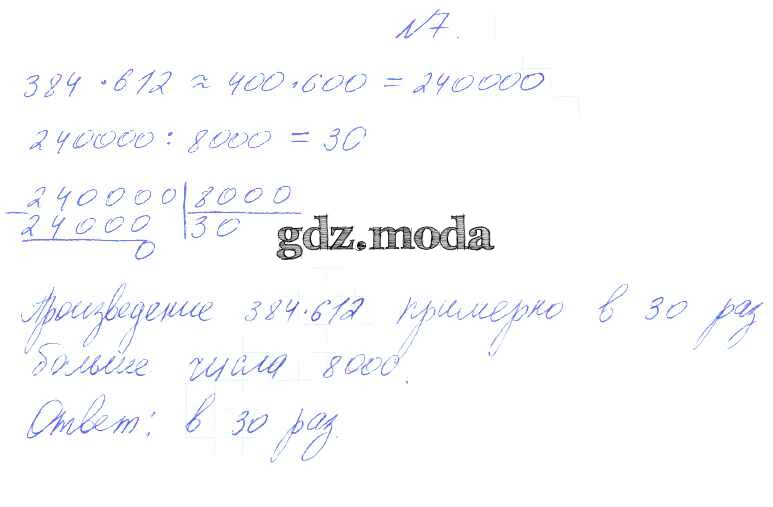 №7.
384 · 612 ≈ 400 · 600 = 240000
240000 : 8000 = 30
240000 | 8000
- 24000 | 30
0
gdz.moda
Произведение 384·612 примерно в 30 раз
больше числа 8000.
Ответ: в 30 раз.